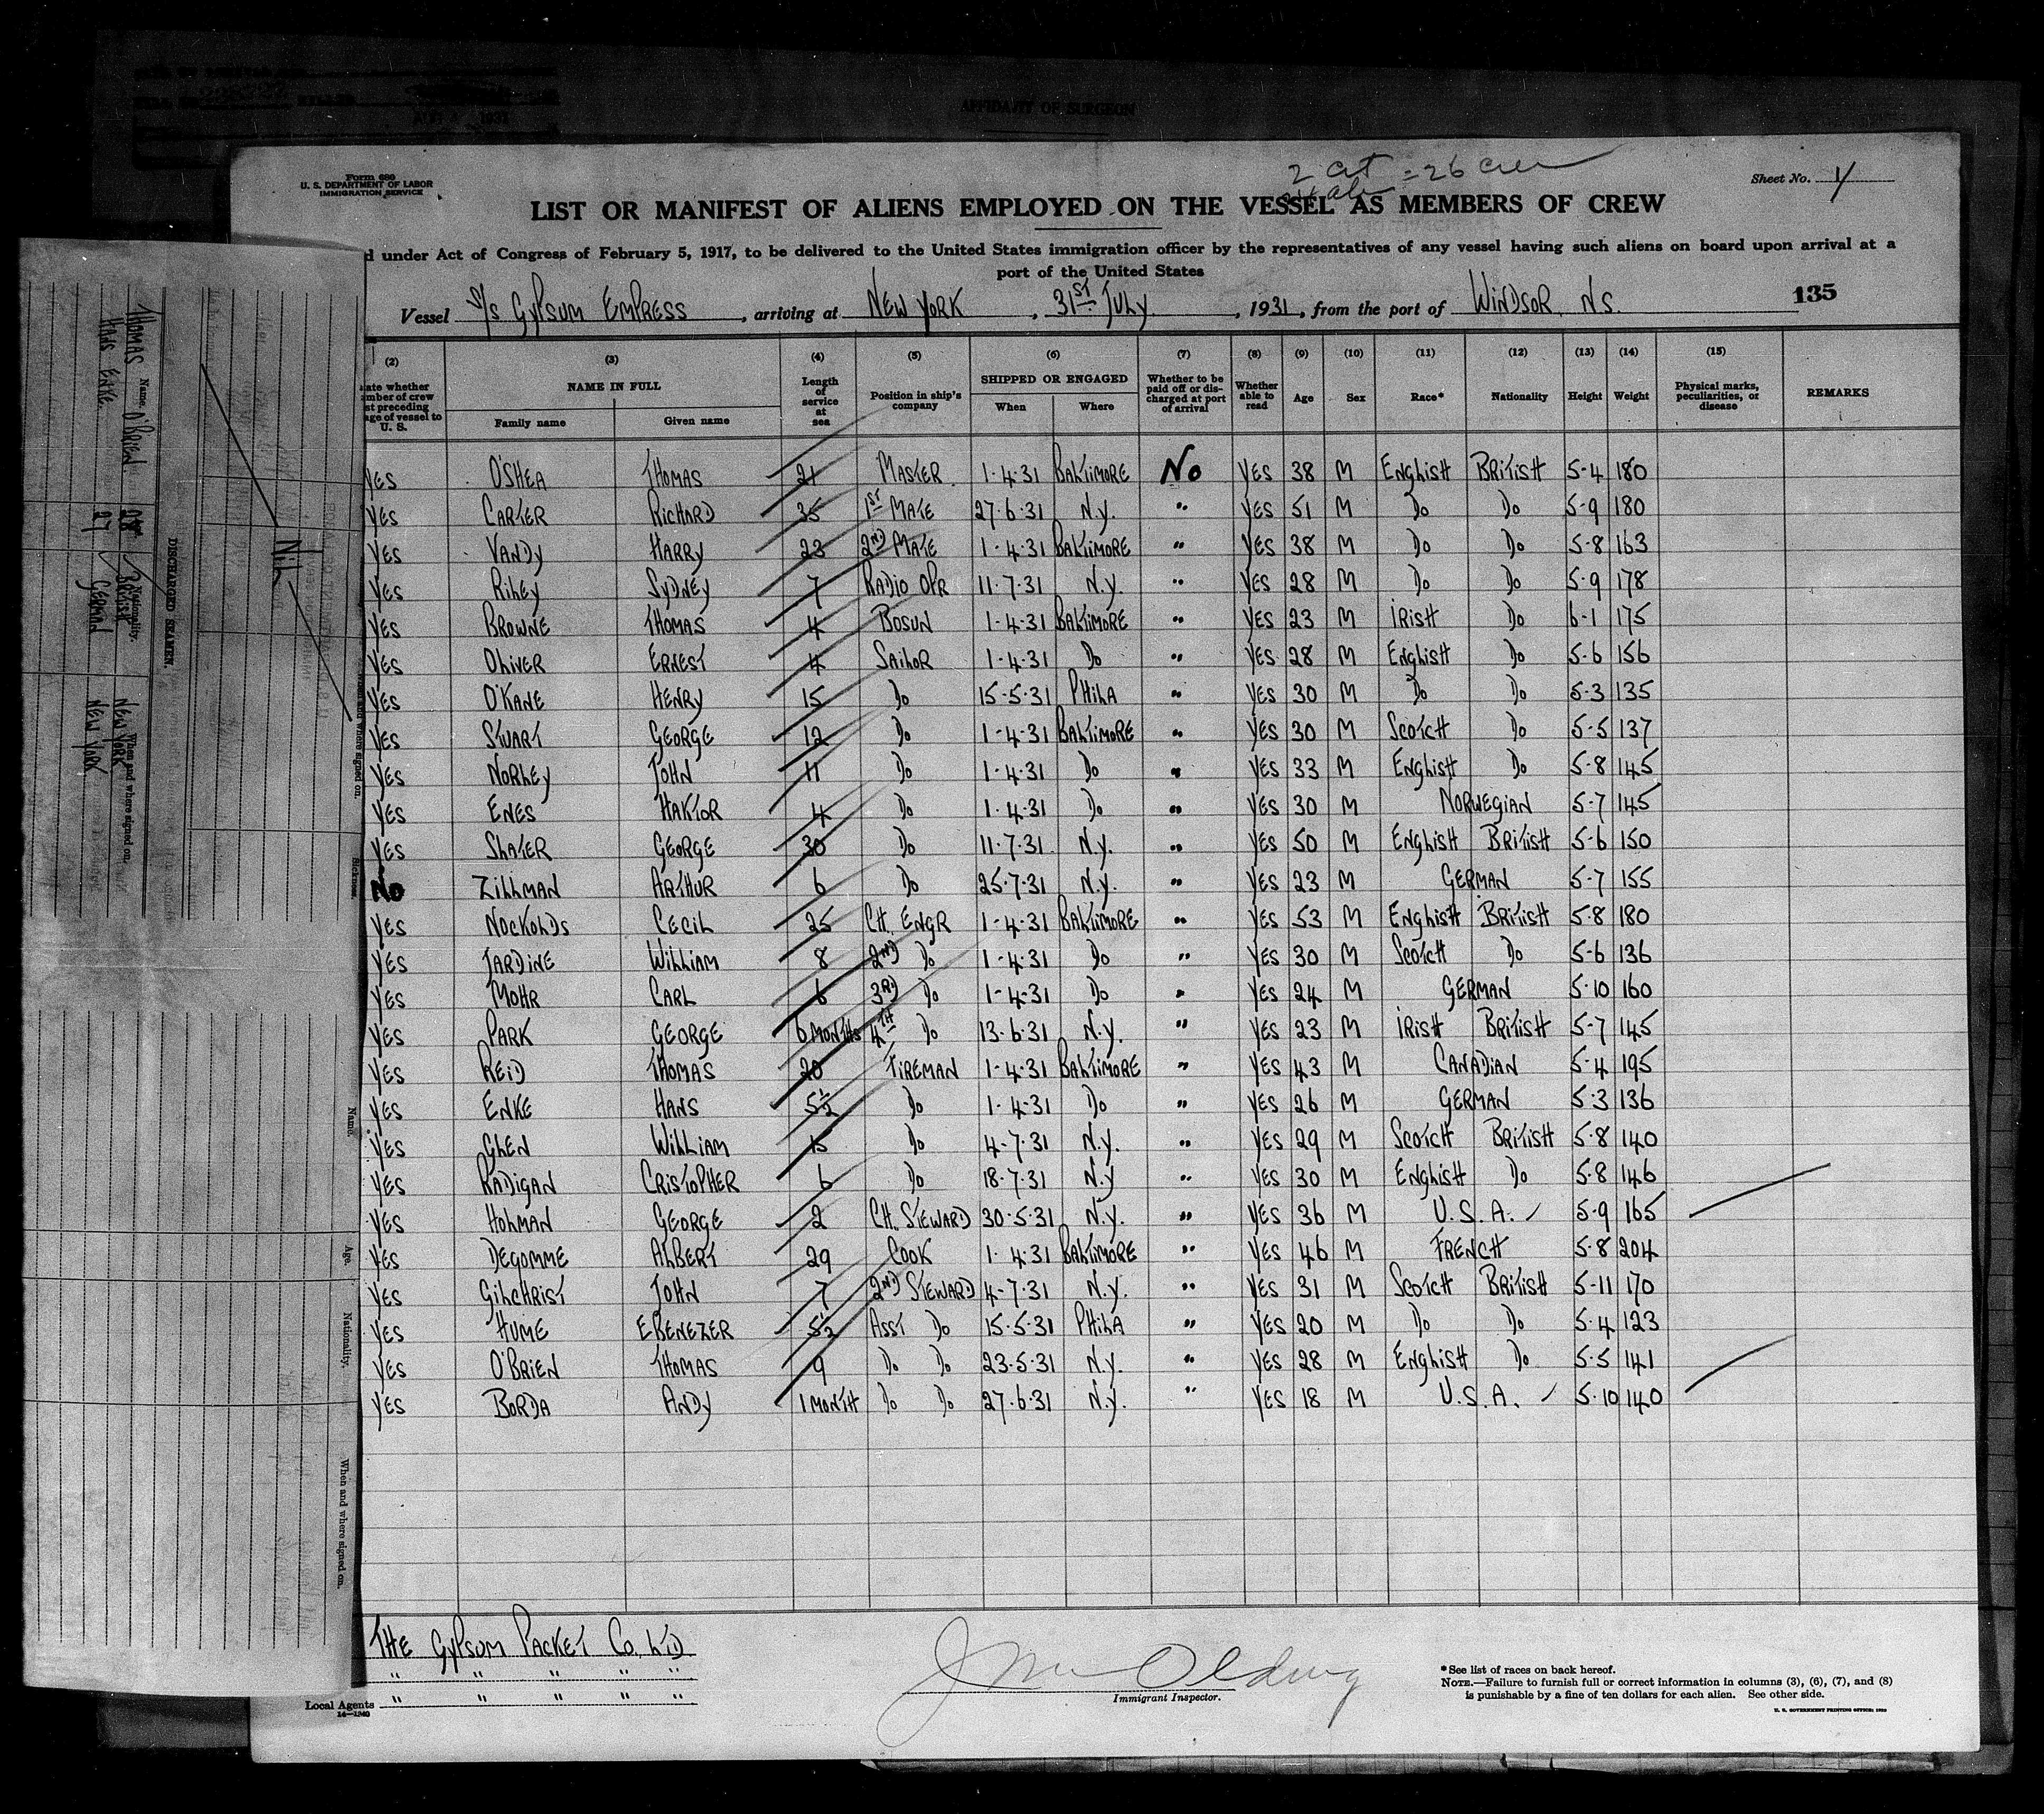 AFFIDAVIT OF SURGEON
AUG 1931
Form 680
U. S. DEPARTMENT OF LABOR
IMMIGRATION SERVICE
2 cit = 26 crew
Sheet No. 1
LIST OR MANIFEST OF ALIENS EMPLOYED ON THE VESSEL AS MEMBERS OF CREW
d under Act of Congress of February 5, 1917, to be delivered to the United States immigration officer by the representatives of any vessel having such aliens on board upon arrival at a
port of the United States
135
Vessel S/S GYPSUM EMPRESS, arriving at NEW YORK, 31ST JULY, 1931, from the port of WINDSOR. N.S.
(2) (3) (4) (5) (6) (7) (8) (9) (10) (11) (12) (13) (14) (15)
ate whether mber of crew st preceding age of vessel to U. S. NAME IN FULL Family name Given name Length of service at sea Position in ship's company SHIPPED OR ENGAGED When Where Whether to be paid off or discharged at port of arrival Whether able to read Age Sex Race* Nationality Height Weight Physical marks, peculiarities, or disease REMARKS
YES O'SHEA THOMAS 21 MASTER 1-4-31 BALTIMORE NO YES 38 M ENGLISH BRITISH 5-4 180
YES CARTER RICHARD 35 1ST MATE 27-6-31 N.Y. " YES 51 M DO DO 5-9 180
YES VANDY HARRY 23 2ND MATE 1-4-31 BALTIMORE " YES 38 M DO DO 5-8 163
YES RILEY SYDNEY 7 RADIO OPR 11-7-31 N.Y. " YES 28 M DO DO 5-9 178
YES BROWNE THOMAS 4 BOSUN 1-4-31 BALTIMORE " YES 23 M IRISH DO 6-1 175
YES OLIVER ERNEST 4 SAILOR 1-4-31 DO " YES 28 M ENGLISH DO 5-6 156
YES O'KANE HENRY 15 DO 15-5-31 PHILA " YES 30 M DO DO 5-3 135
YES STUART GEORGE 12 DO 1-4-31 BALTIMORE " YES 30 M SCOTCH DO 5-5 137
YES NORLEY JOHN 11 DO 1-4-31 DO " YES 33 M ENGLISH DO 5-8 145
YES ENES HAKTOR 4 DO 1-4-31 DO " YES 30 M NORWEGIAN 5-7 145
YES SLATER GEORGE 30 DO 11-7-31 N.Y. " YES 50 M ENGLISH BRITISH 5-6 150
NO ZILLMAN ARTHUR 6 DO 25-7-31 N.Y. " YES 23 M GERMAN 5-7 155
YES NOCKOLDS CECIL 25 CH. ENGR 1-4-31 BALTIMORE " YES 53 M ENGLISH BRITISH 5-8 180
YES JARDINE WILLIAM 8 2ND DO 1-4-31 DO " YES 30 M SCOTCH DO 5-6 136
YES MOHR CARL 6 3RD DO 1-4-31 DO " YES 24 M GERMAN 5-10 160
YES PARK GEORGE 6 MONTHS 4TH DO 13-6-31 N.Y. " YES 23 M IRISH BRITISH 5-7 145
YES REID THOMAS 20 FIREMAN 1-4-31 BALTIMORE " YES 43 M CANADIAN 5-4 195
YES ENKE HANS 5½ DO 1-4-31 DO " YES 26 M GERMAN 5-3 136
YES GLEN WILLIAM 15 DO 4-7-31 N.Y. " YES 29 M SCOTCH BRITISH 5-8 140
YES RADIGAN CRISTOPHER 6 DO 18-7-31 N.Y " YES 30 M ENGLISH DO 5-8 146
YES HOLMAN GEORGE 2 CH. STEWARD 30-5-31 N.Y. " YES 36 M U.S.A. 5-9 165
YES DEGOMME ALBERT 29 COOK 1-4-31 BALTIMORE " YES 46 M FRENCH 5-8 204
YES GILCHRIST JOHN 7 2ND STEWARD 4-7-31 N.Y. " YES 31 M SCOTCH BRITISH 5-11 170
YES HUME EBENEZER 5½ ASST DO 15-5-31 PHILA " YES 20 M DO DO 5-4 123
YES O'BRIEN THOMAS 9 DO DO 23-5-31 N.Y. " YES 28 M ENGLISH DO 5-5 141
YES BORDA ANDY 1 MONTH DO DO 27-6-31 N.Y. " YES 18 M U.S.A. 5-10 140
THE GYPSUM PACKET CO. LTD
" " " " "
Local Agents " " " " "
14—1240
Immigrant Inspector.
*See list of races on back hereof.
NOTE.—Failure to furnish full or correct information in columns (3), (6), (7), and (8)
is punishable by a fine of ten dollars for each alien. See other side.
U. S. GOVERNMENT PRINTING OFFICE: 1930
DISCHARGED SEAMEN.
Name. Nationality. When and where signed on.
THOMAS O'BRIEN 28 BRITISH NEW YORK
HANS ENKE. 27 GERMAN NEW YORK
NIL
Sickness.
Name. Age. Nationality. When and where signed on.